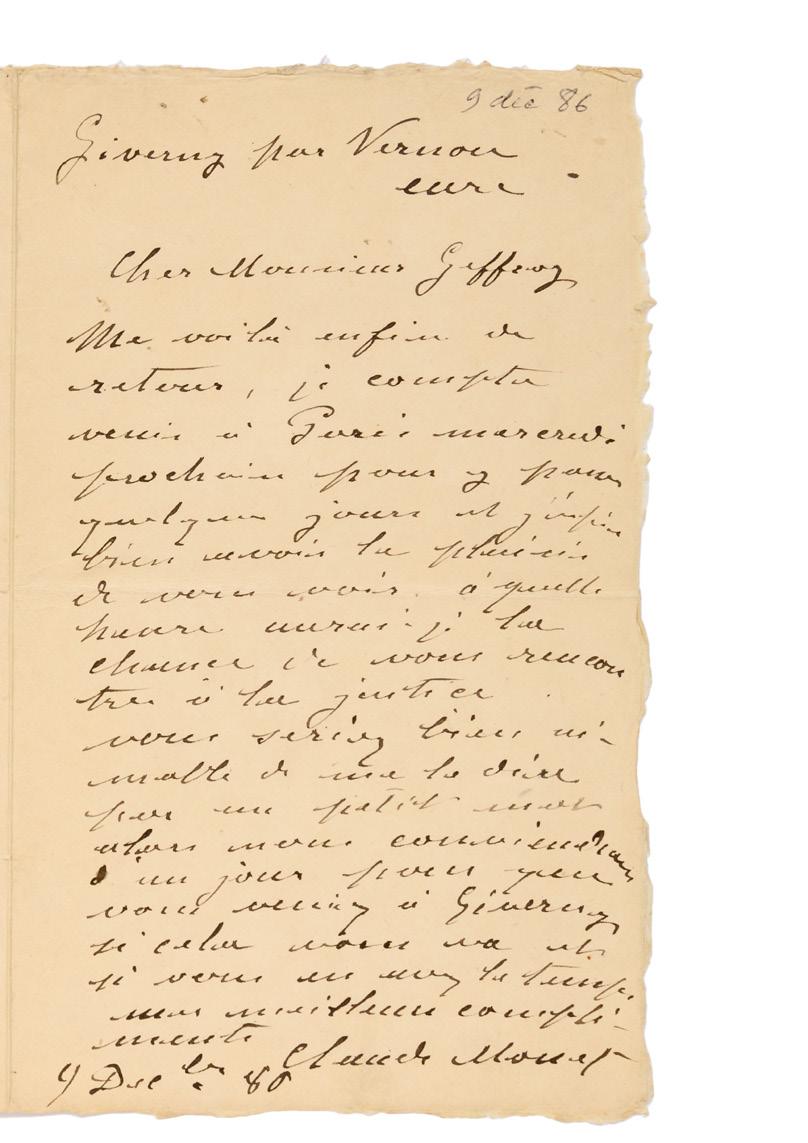 9 déc 86
Giverny par Vernon
eure
Cher Monsieur Geffroy
Me voilà enfin de
retour, je compte
venir à Paris mercredi
prochain pour y passer
quelques jours et j'espère
bien avoir le plaisir
de vous voir. à quelle
heure aurai-je la
chance de vous rencon
trer à la justice
vous seriez bien ai-
mable de me le dire
par un petit mot
alors nous conviendrons
d'un jour pour que
vous veniez à Giverny
si cela vous va et
si vous en avez le temps.
mes meilleurs compli-
ments
Claude Monet
9 Dec bre 86